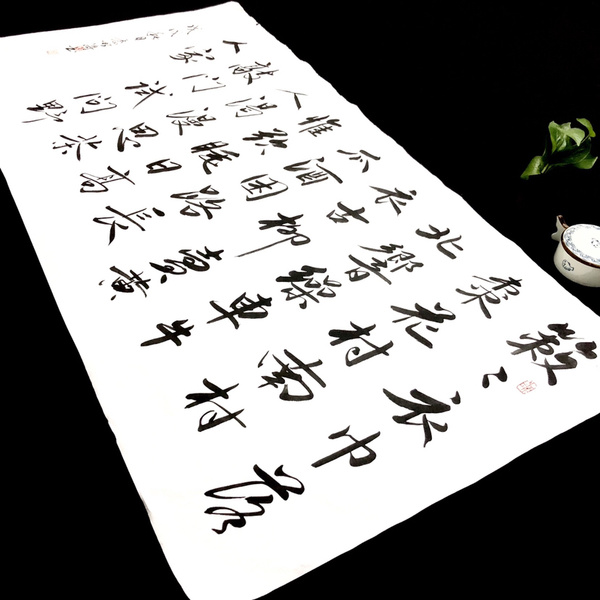 簌〻衣巾落
棗花村南村
北響繰車牛
衣古柳賣黄
瓜酒困路長
惟欲睡日高
人渴漫思茶
敲门试问野
人家